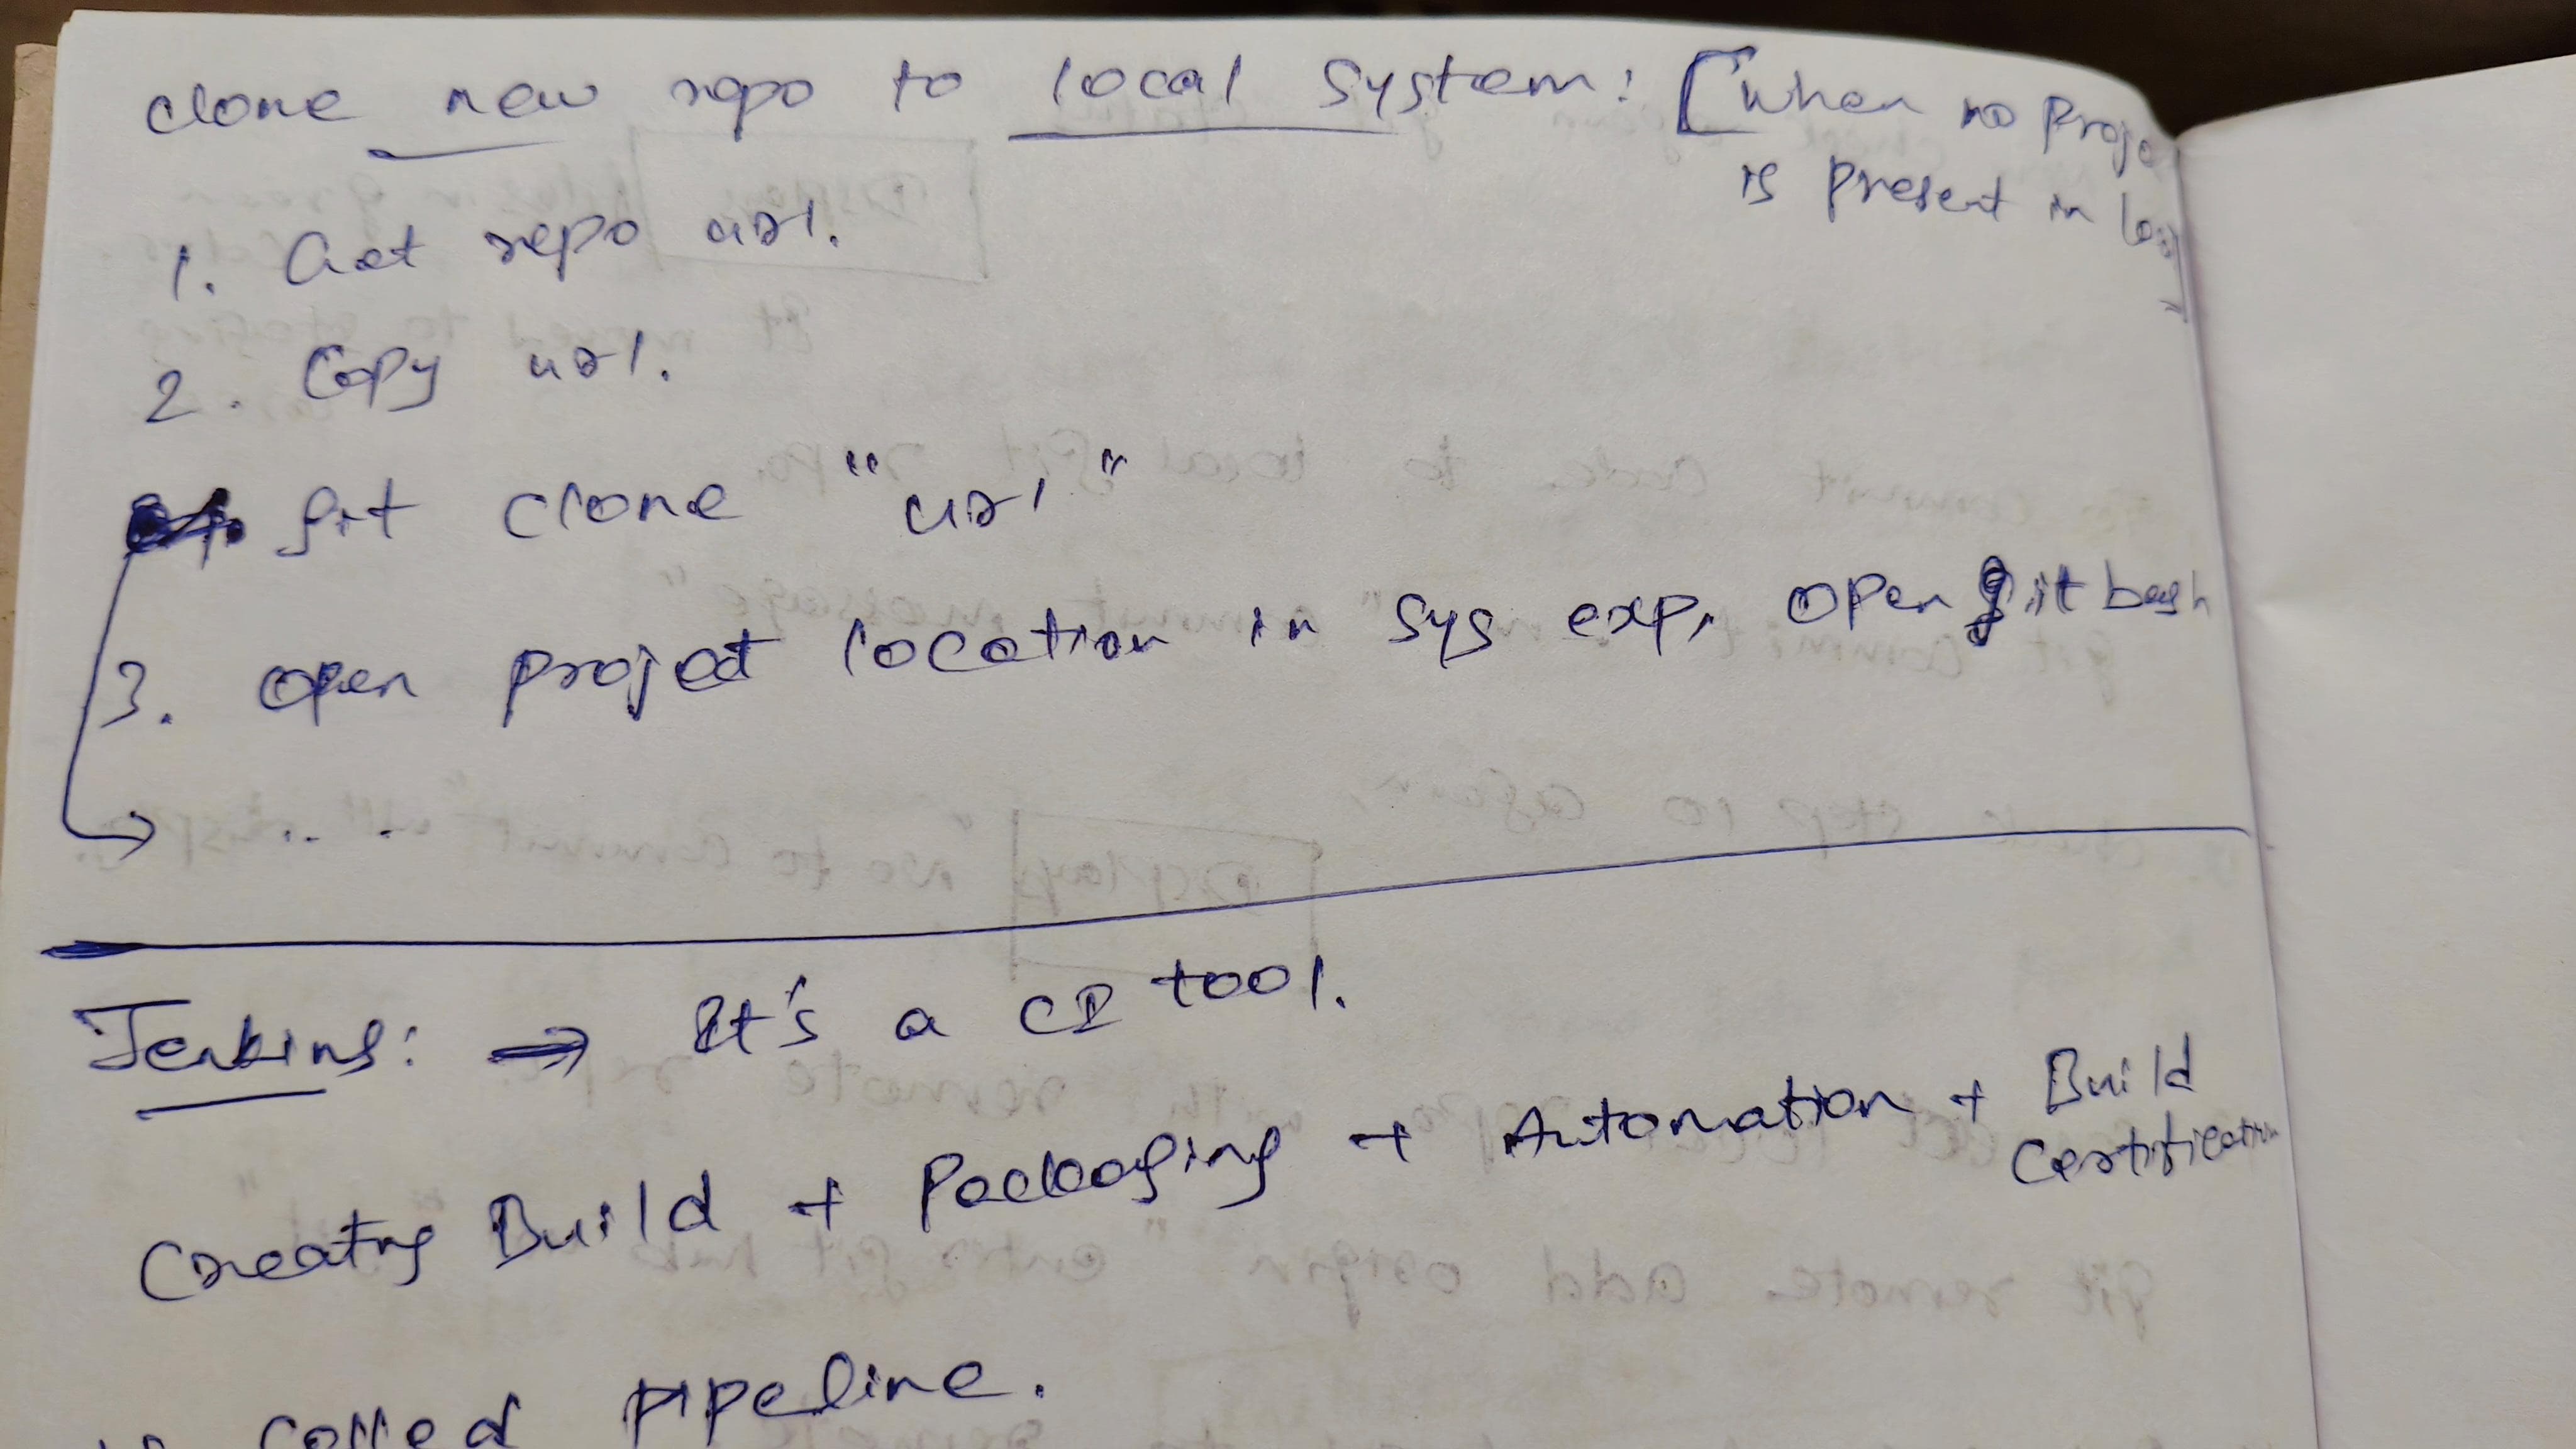 clone new repo to local system: [when no proje
is present in loc
1. Get repo url.
2. Copy url.
git clone "url"
3. open project location in sys exp, open git bash
→ . . .
Jenkins: → It's a CI tool.
Creating Build + Packaging + Automation + Build
Certification
is called pipeline.